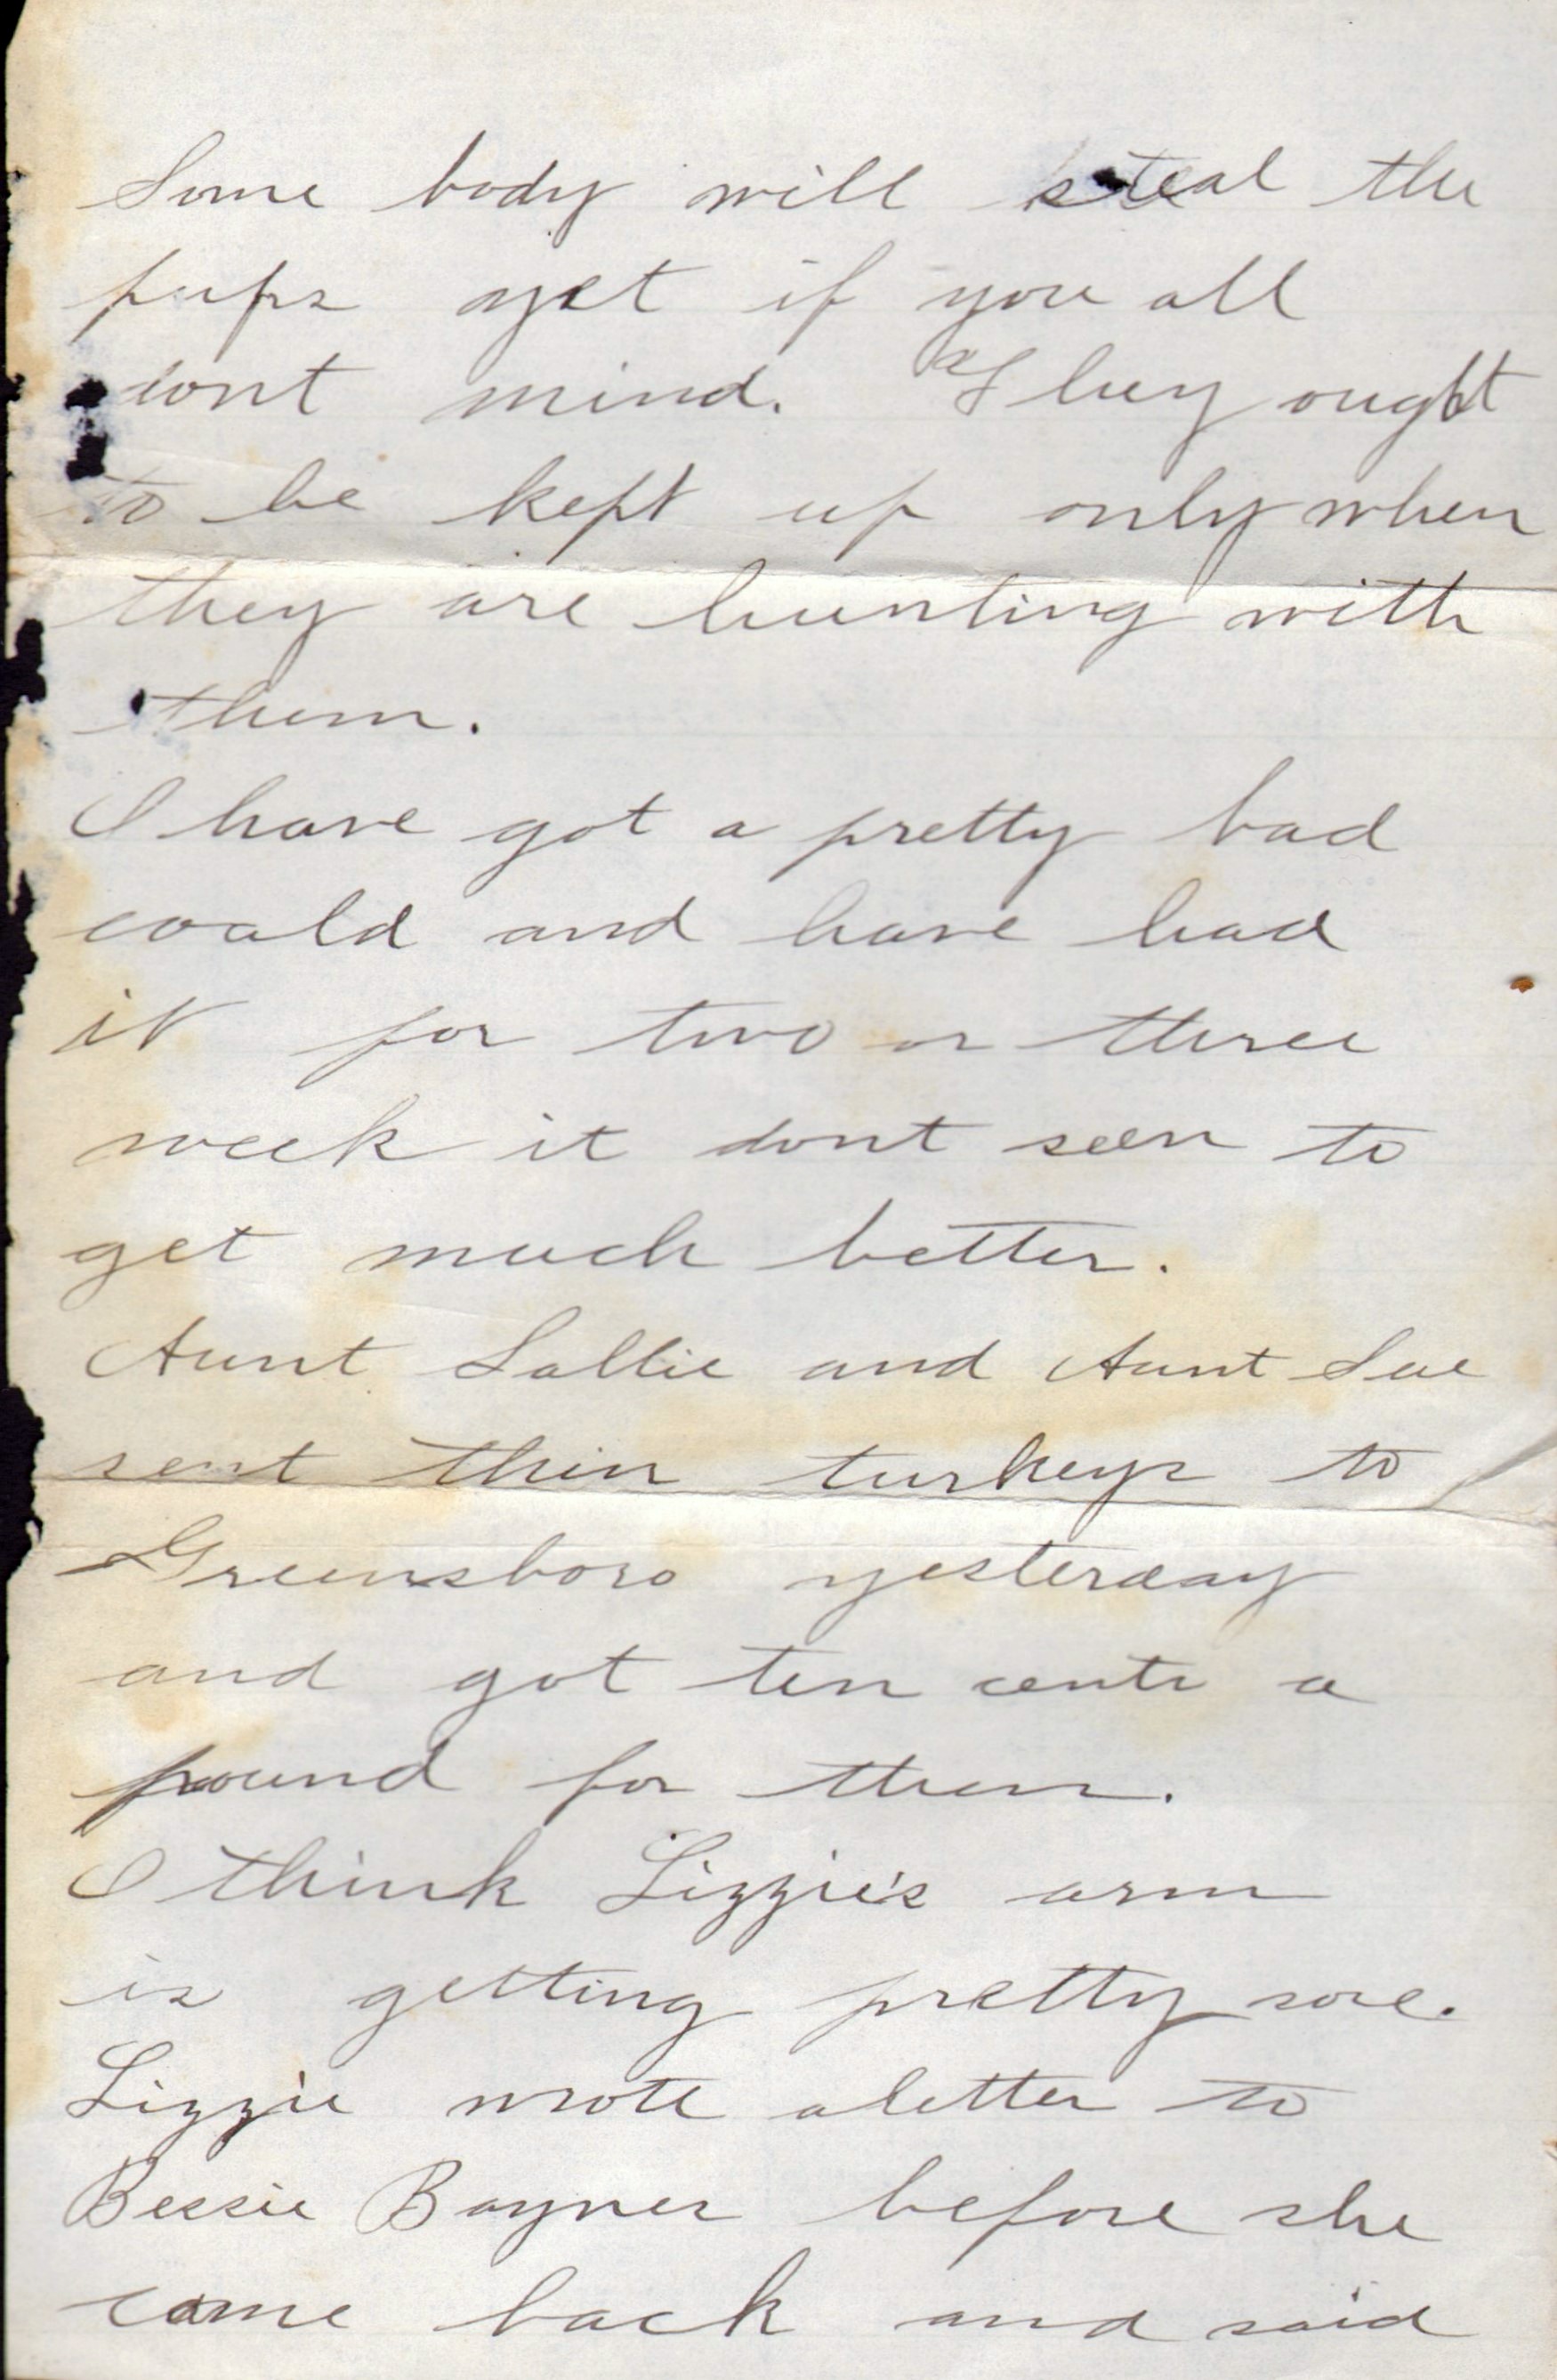 Some body will steal the
pups yet if you all
dont mind. They ought
to be kept up only when
they are hunting with
them.
I have got a pretty bad
coald and have had
it for two or three
week it dont seen to
get much better.
Aunt Sallie and Aunt Sue
sent thin turkeys to
Greensboro yesterday
and got ten cents a
pound for them.
I think Lizzie's arm
is getting pretty sore.
Lizzie wrote a letter to
Bessie Bayner before she
came back and said